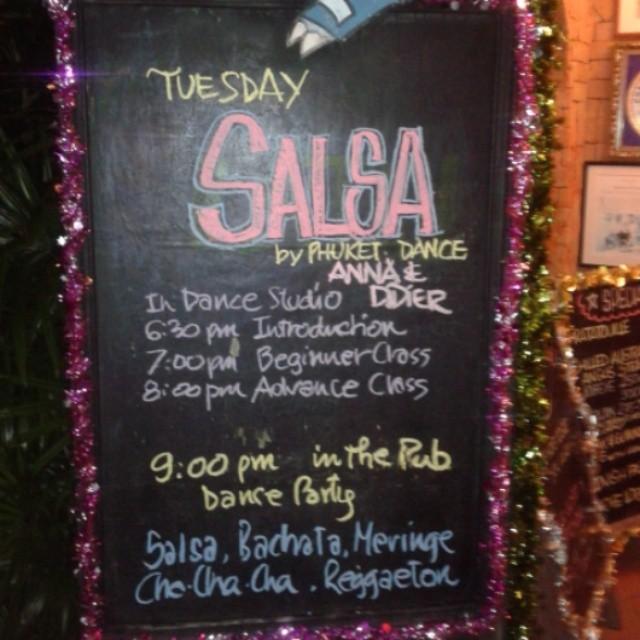 TUESDAY
SALSA
by PHUKET DANCE
ANNA &
DIDIER
In Dance Studio
6:30 pm Introduction
7:00 pm Beginner Class
8:00 pm Advance Class
9:00 pm in the Pub
Dance Party
Salsa, Bachata, Meringe
Cha-Cha-Cha. Reggaeton